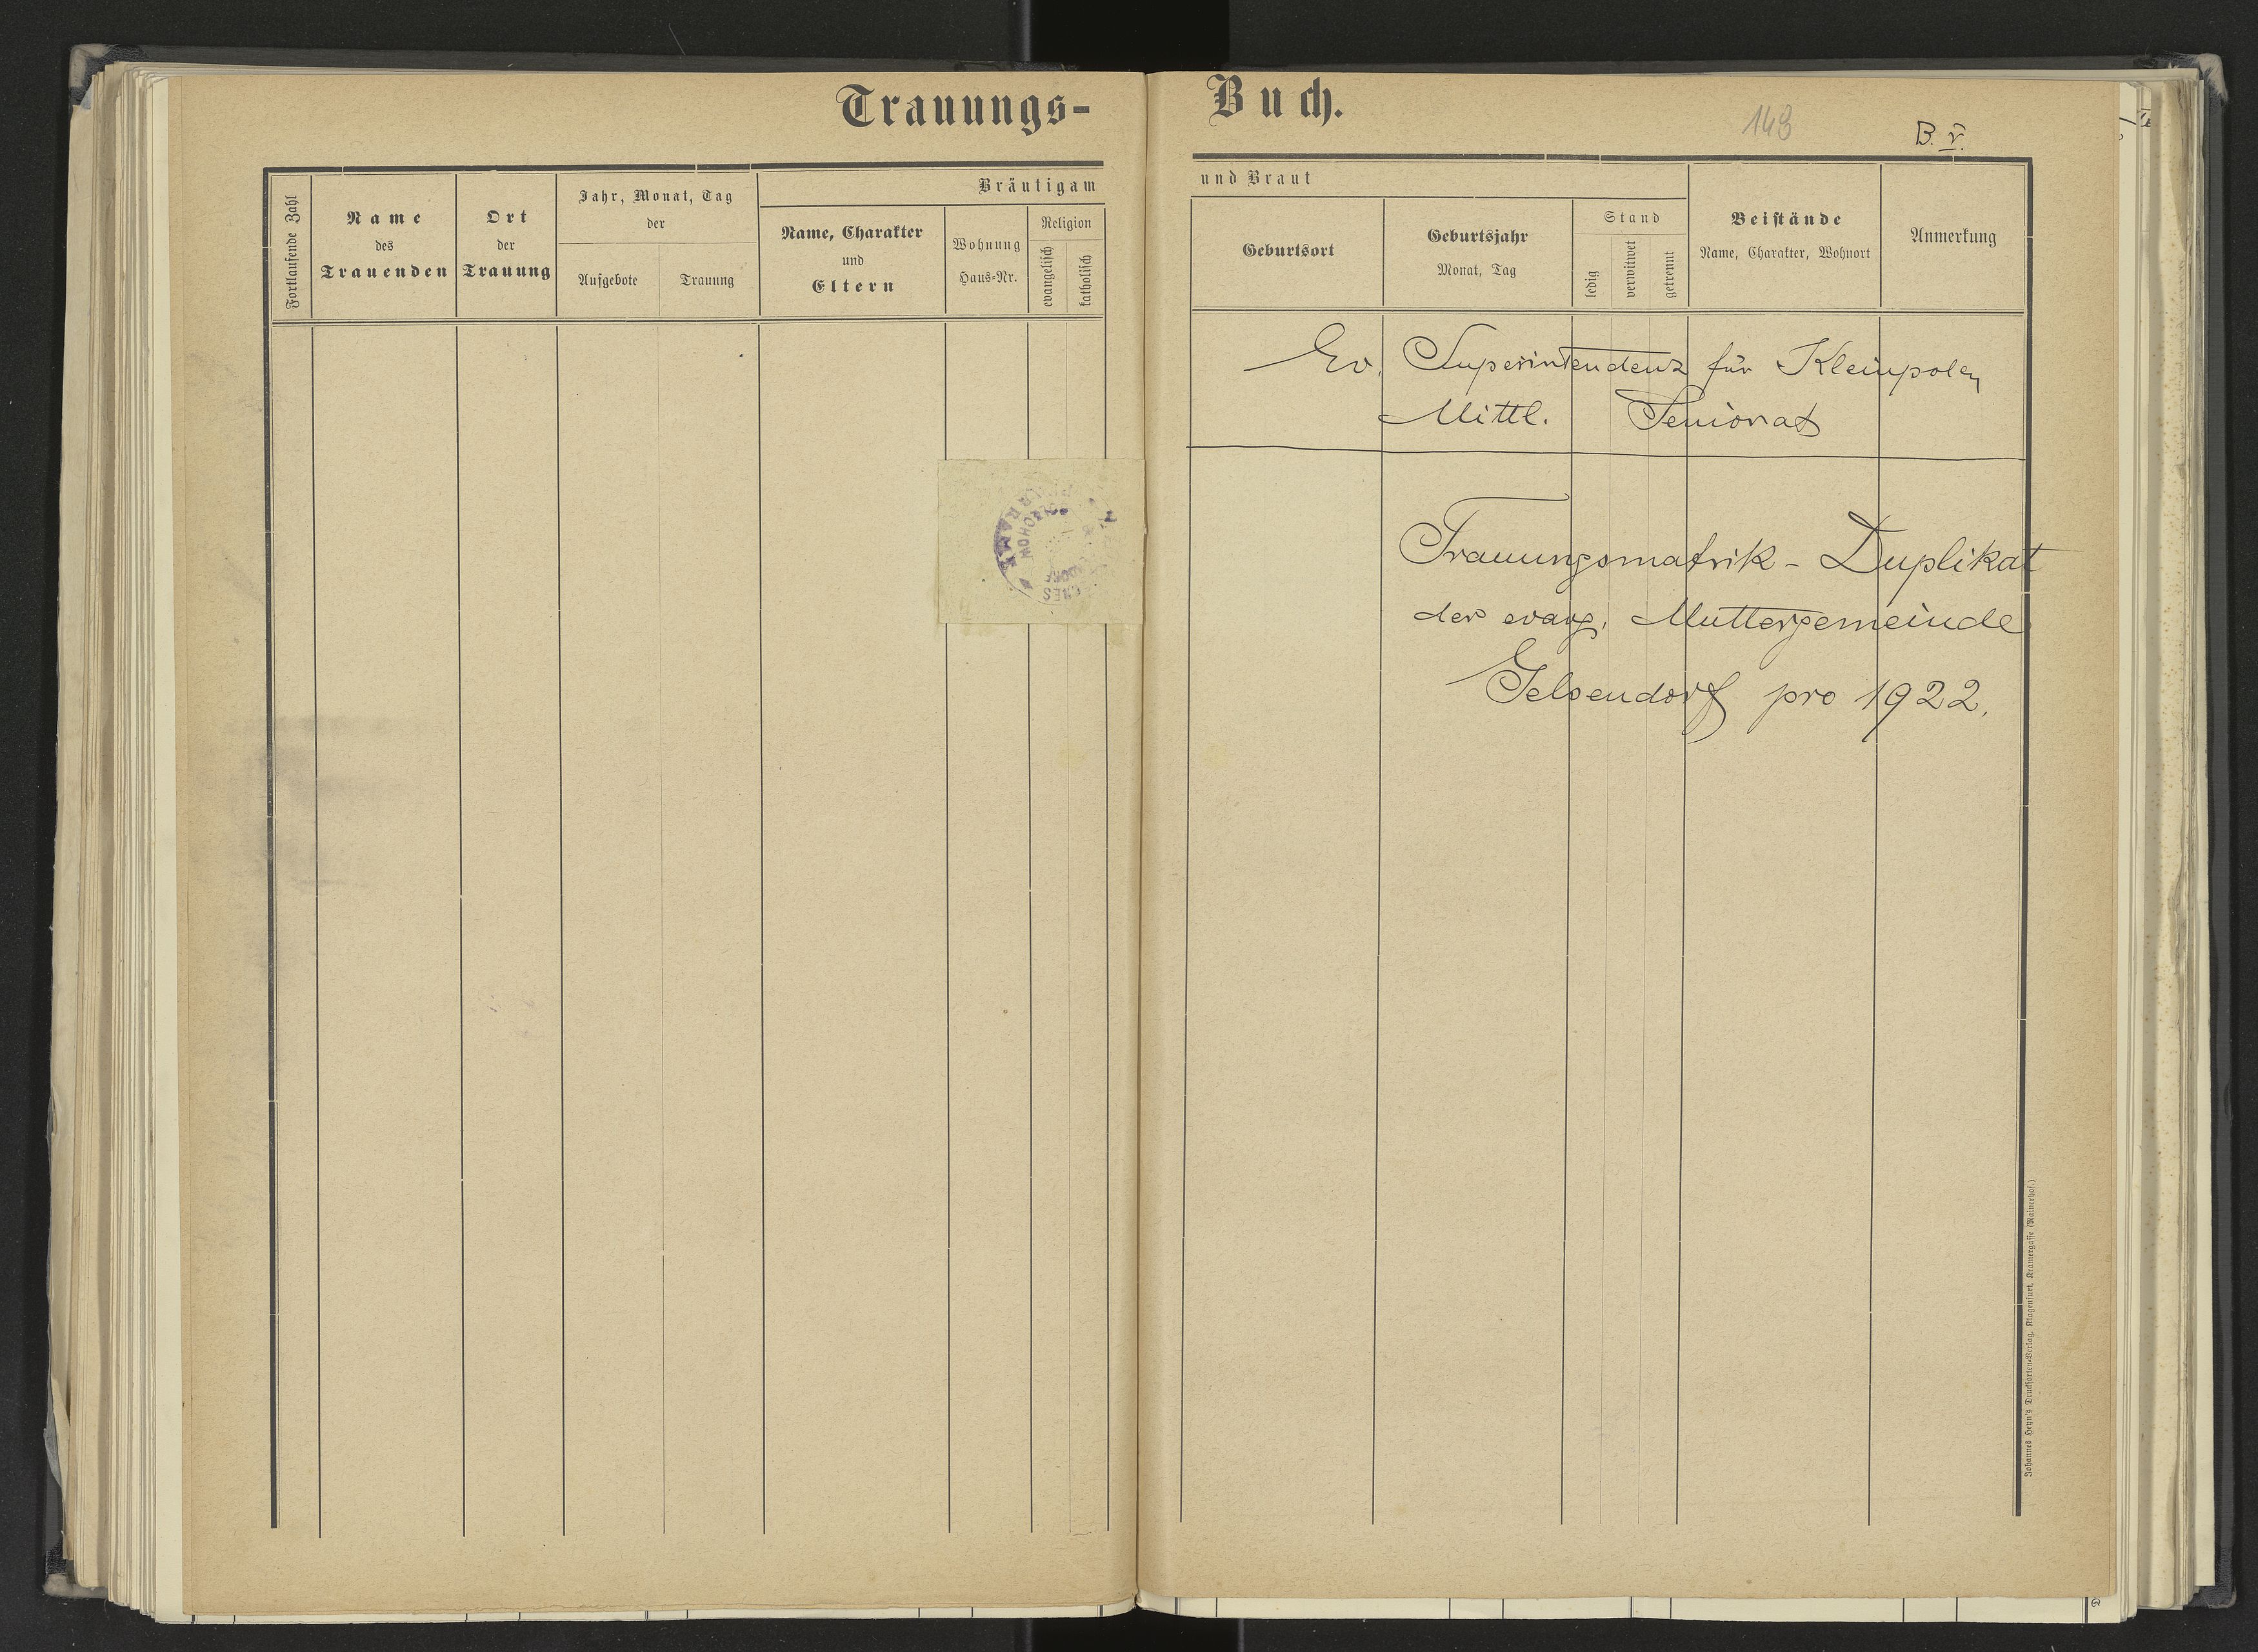 Trauungs-
Fortlaufende Zahl
Name
des
Trauenden
Ort
der
Trauung
Jahr, Monat, Tag
der
Aufgebote
Trauung
Bräutigam
Name, Charakter
und
Eltern
Wohnung
Haus-Nr.
Religion
evangelisch
katholisch
Buch.
143
B. V.
und Braut
Geburtsort
Geburtsjahr
Monat, Tag
Stand
ledig
verwitwet
getrennt
Beistände
Name, Charakter, Wohnort
Anmerkung
Ev. Superintendenz für Kleinpolen
Mittl. Seniorat
Trauungsmatrik - Duplikat
der evang. Muttergemeinde
Gelsendorf pro 1922.
Johannes Heyn's Drucksorten-Verlag, Klagenfurt, Kramergasse (Rainerhof.)